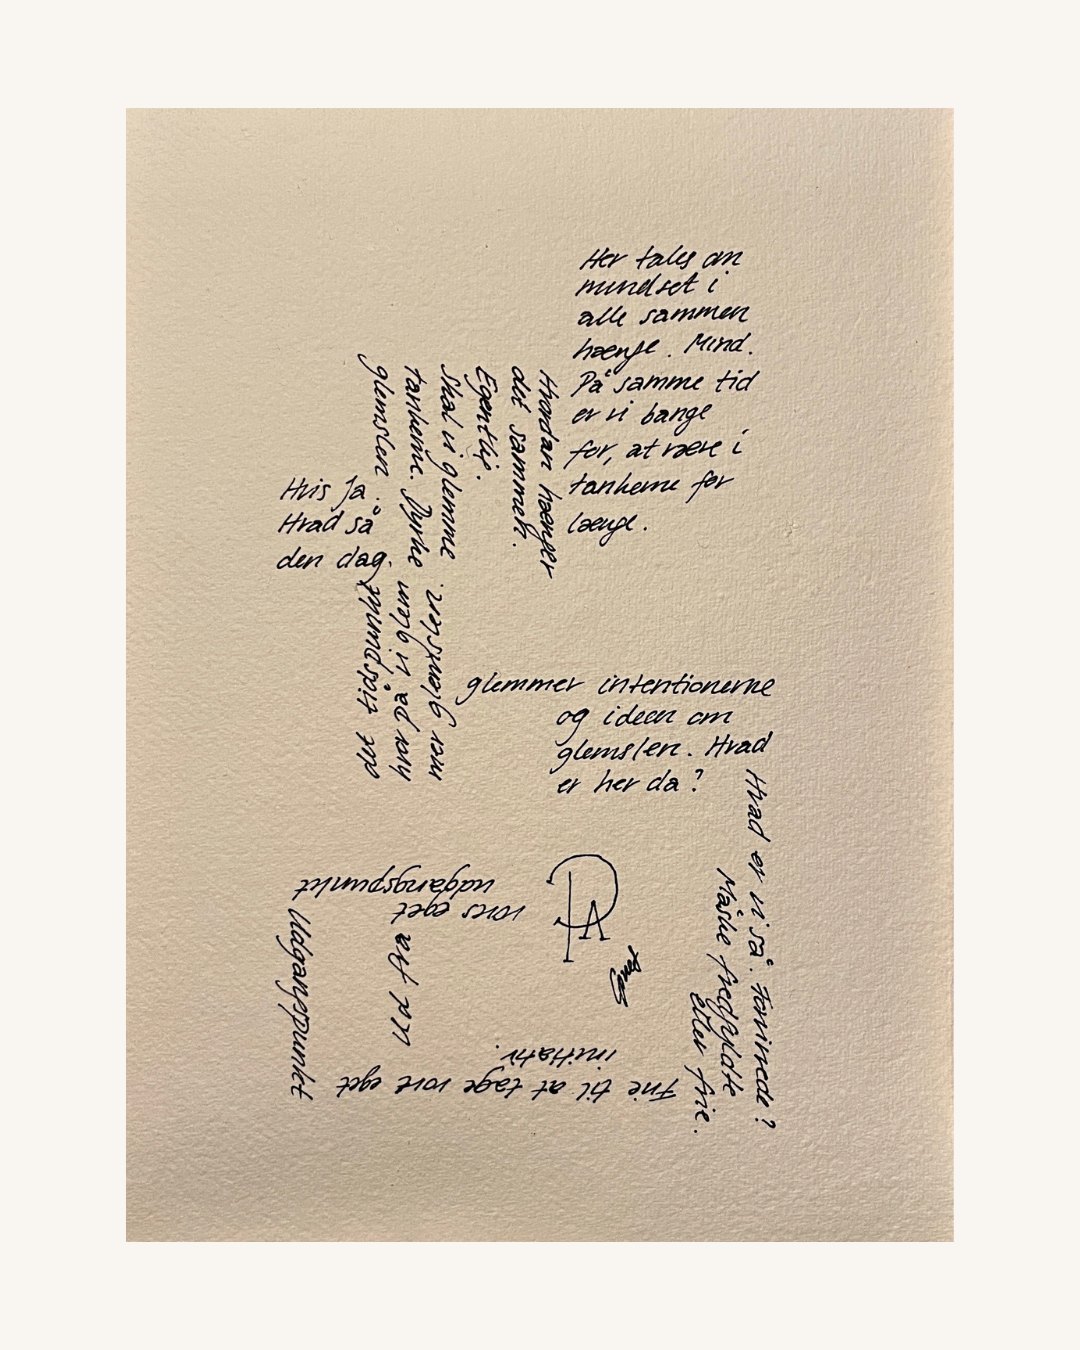 Her tales om
mindset i
alle sammen
hænge. Mind.
På samme tid
er vi bange
for, at være i
tankerne for
længe.
Hvordan hænger
det sammen.
Egentlig.
Skal vi glemme
tankerne. Dyrke
glemslen.
Hvis Ja.
Hvad så
den dag.
det tidspunkt,
hvor på vi glem
mer glemslen.
glemmer intentionerne
og ideen om
glemslen. Hvad
er her da?
Hvad er vi så. Forvirrede?
Måske fredfyldte
eller frie.
Frie til at tage vort eget
initiativ.
ud fra
vores eget
udgangspunkt
Udgangspunkt